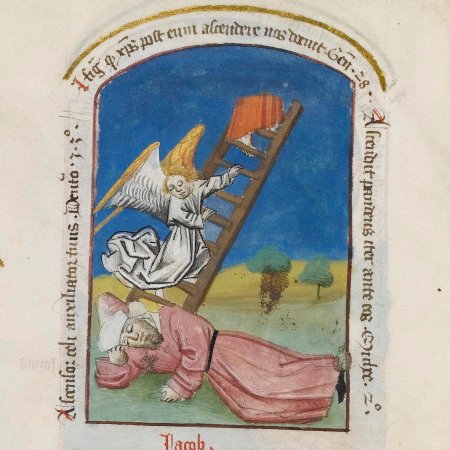 q xp̄s post eum ascendere nos docuit · Gen̄ · 28
Ascensor celi auxiliator tuus · Deuto · 33°
Ascendit pandens iter ante eos · Michee · 2°
Jacob.